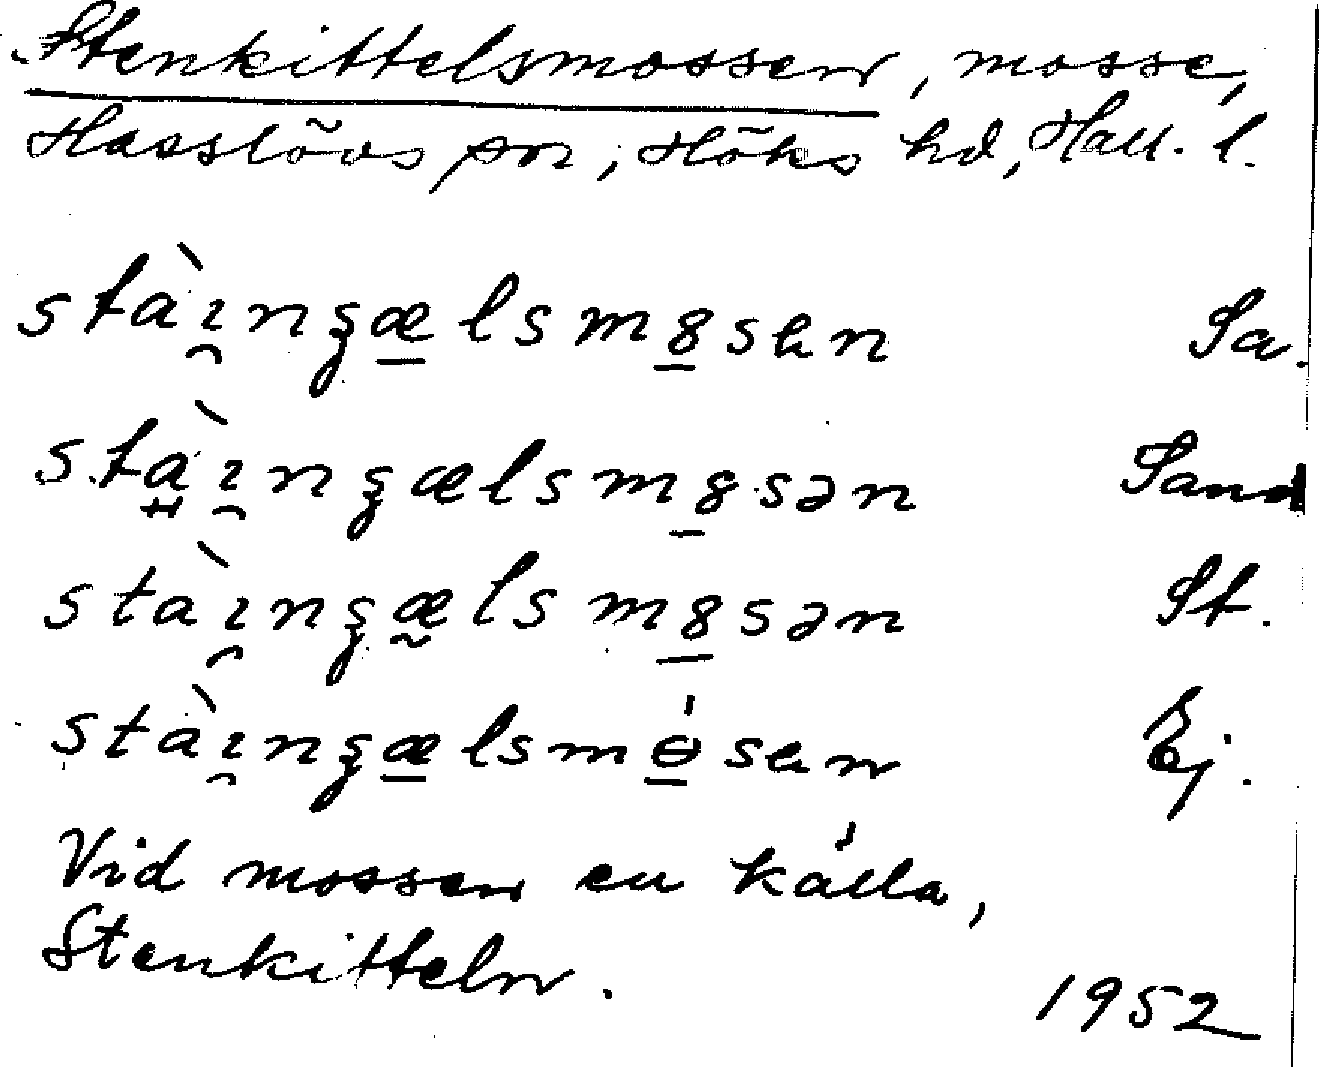 Stenkittelsmossen, mosse,
Hasslövs sn, Höks hd, Hall. l.
stàı̯nʒæ̱lsmȣ̱sen Sa.
stàı̯nʒælsmȣ̱sən Sand
stàı̯nʒæ̰lsmȣ̱sən St.
stàı̯nʒæ̱lsmɵ̱́sen Ej.
Vid mossen en källa,
Stenkitteln.
1952